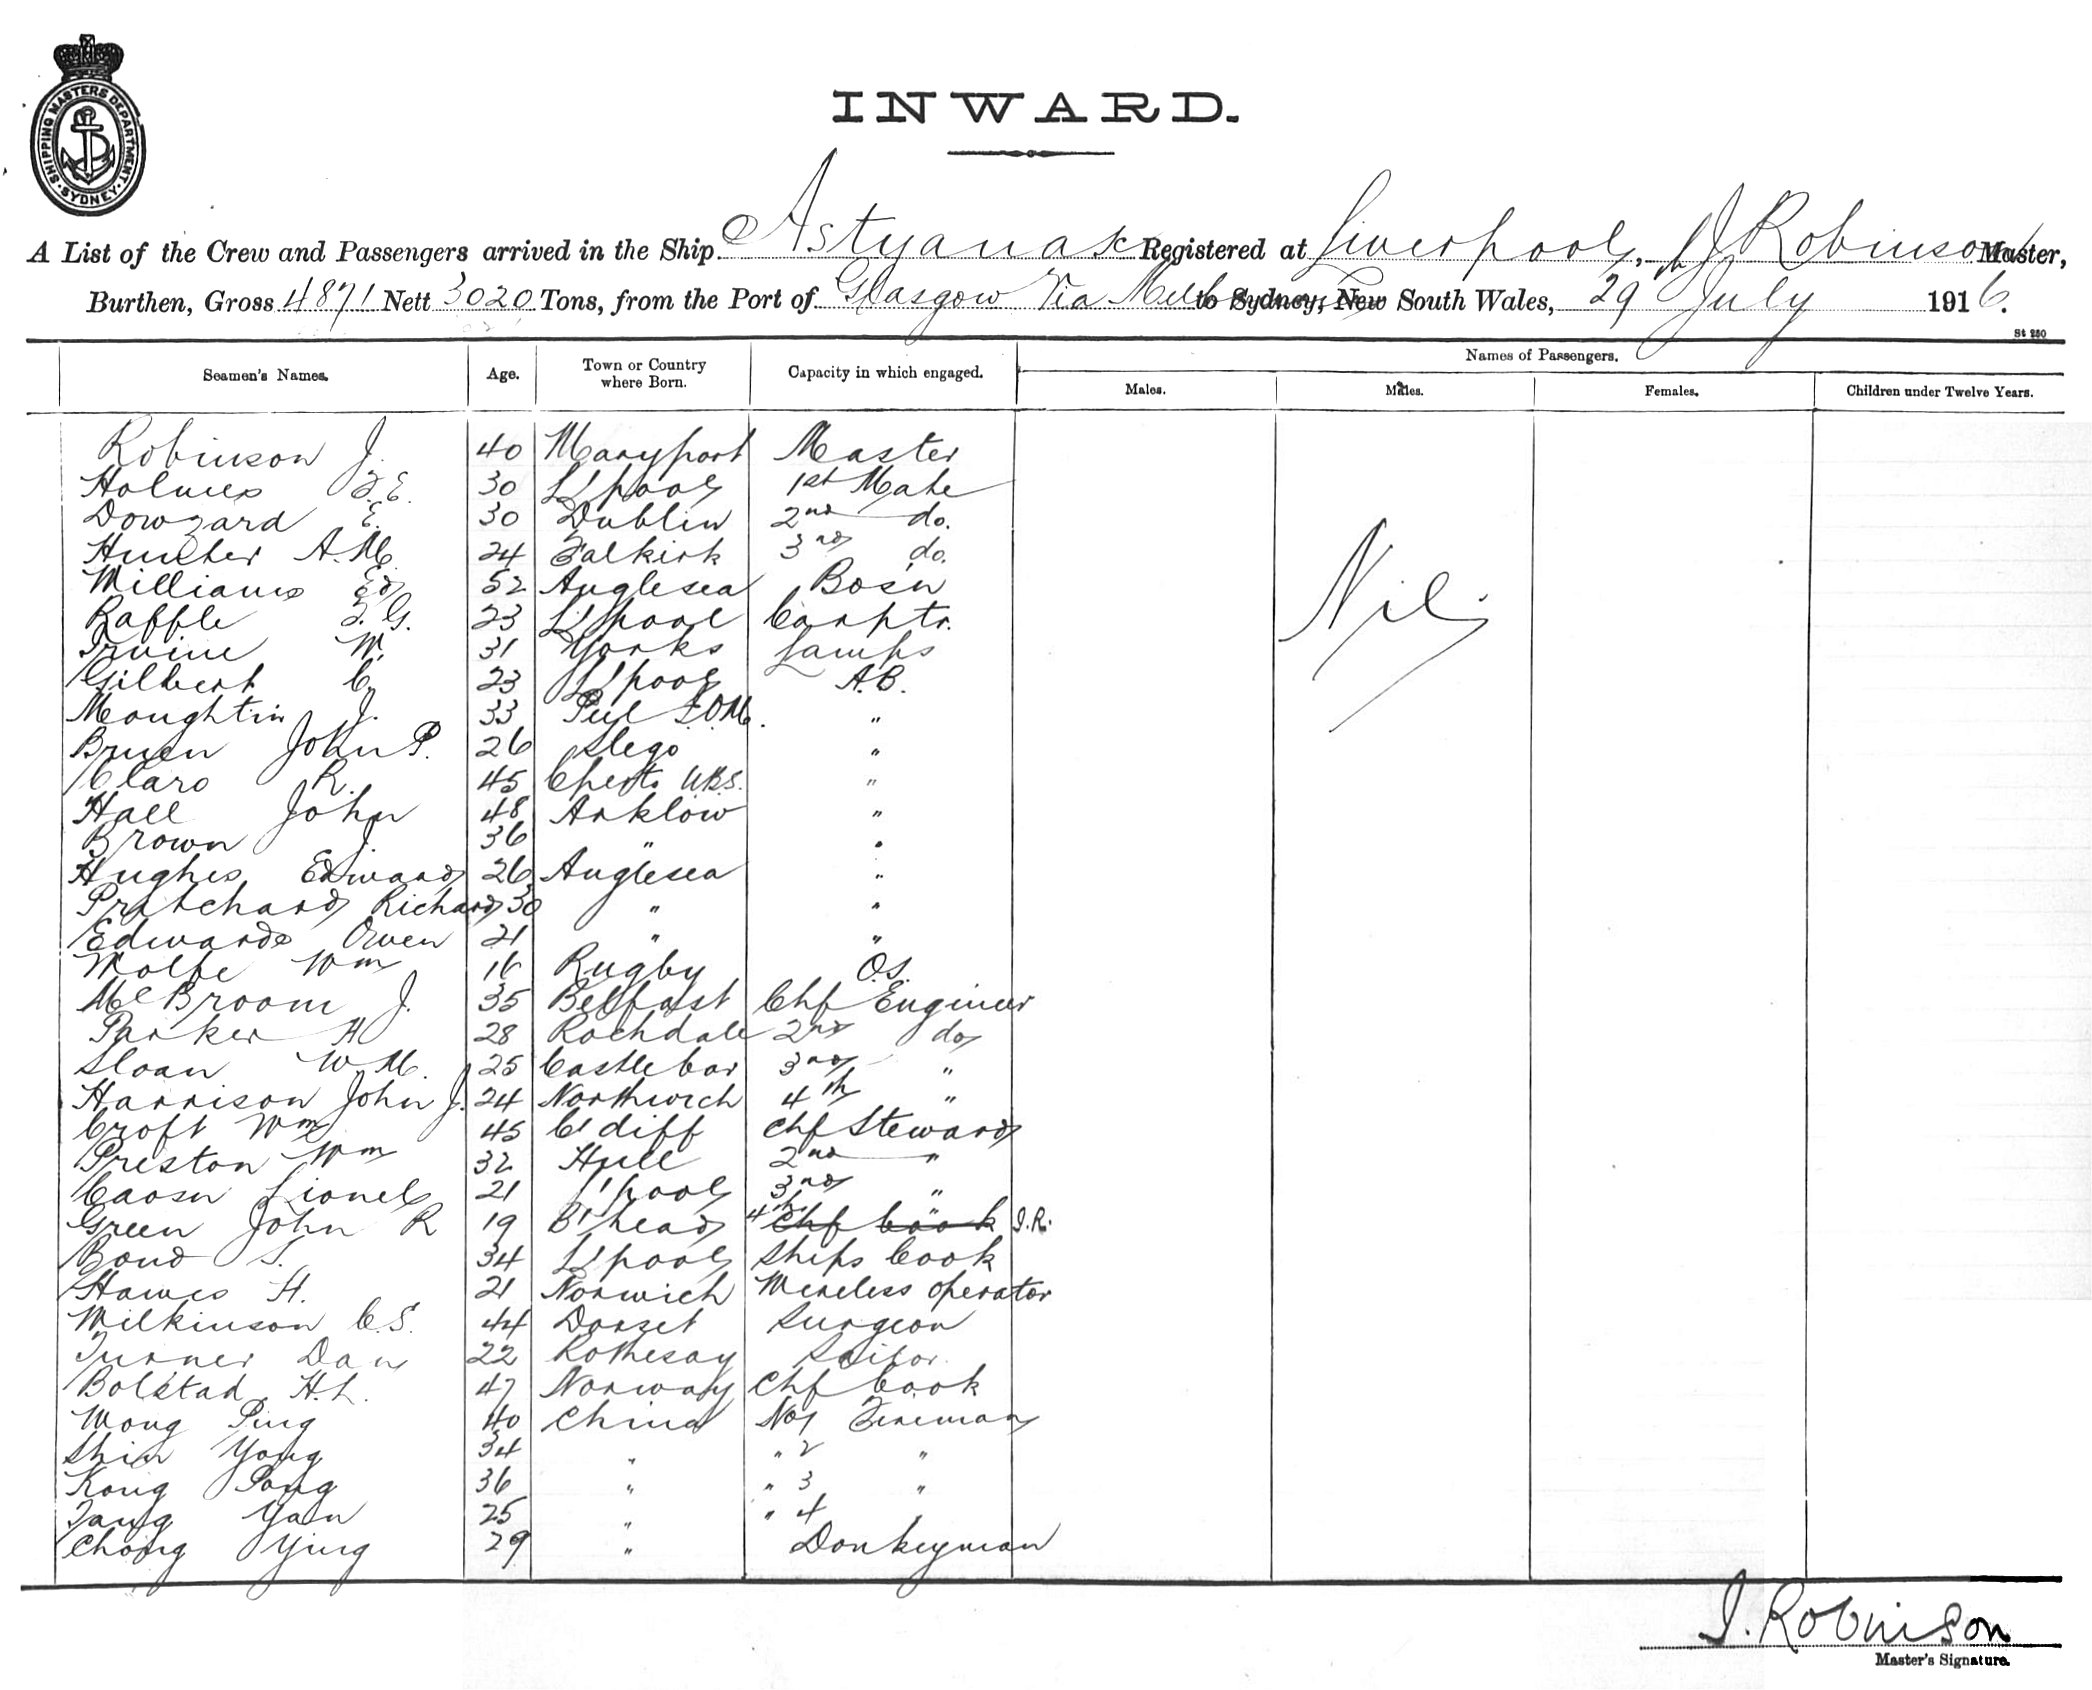 SHIPPING MASTERS DEPARTMENT · SYDNEY ·
INWARD.
A List of the Crew and Passengers arrived in the Ship Astyanax Registered at Liverpool, J Robinson Master,
Burthen, Gross 4871 Nett 3020 Tons, from the Port of Glasgow Via Melbourne to Sydney, New South Wales, 29th July 1916.
St 250
Seamen's Names. Age. Town or Country where Born. Capacity in which engaged. Names of Passengers.
Males. Males. Females. Children under Twelve Years.
Robinson J. 40 Maryport Master
Holmes F.E. 30 L'pool 1st Mate
Dowzard E. 30 Dublin 2nd do.
Hunter A.M. 24 Falkirk 3rd do.
Williams Ed 52 Anglesea Bos'n
Raffle F.G. 23 L'pool Carptr.
Irvine W. 31 Yorks Lamps
Gilbert C. 23 L'pool A.B.
Moughtin J. 33 Peel I.O.M. "
Bruen John P. 26 Slego "
Claro R. 45 "
Hall John 48 Arklow "
Brown J. 36 " "
Hughes Edward 26 Anglesea "
Pritchard Richard 30 " "
Edwards Owen 21 " "
Wolfe Wm 16 Rugby O.S.
McBroom J. 35 Belfast Chf Engineer
Parker H 28 Rochdale 2nd do
Sloan W.M. 25 Castlebar 3rd "
Harrison John J. 24 Northwich 4th "
Croft Wm 45 C'diff Chf Steward
Preston Wm 32 Hull 2nd "
Caosn Lionel 21 L'pool 3rd "
Green John R 19 B'head 4th " Chf Cook J.R.
Bond S. 34 L'pool Ships Cook
Hawes H. 21 Norwich Wireless operator
Wilkinson C.S. 44 Dorset Surgeon
Turner Dan 22 Rothesay Sailor
Bolstad H.L. 47 Norway Chf Cook
Wong Ping 40 China No1 Fireman
Shin Yong 34 " " 2 "
Kong Pong 36 " " 3 "
Tang Yan 25 " " 4 "
Chong Ying 29 " Donkeyman
Nil.
J. Robinson
Master's Signature.